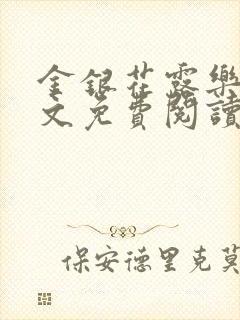 金銀花露樂
文免費閱讀
保安德里克莫